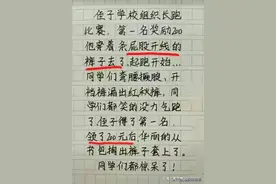 侄子学校组织长跑
比赛，第一名奖励200
他穿着条屁股开线的
裤子去了，起跑开始...
同学们弯腰撅腚，开
裆裤漏出红秋裤，同
学们都笑的没力气跑
了，侄子得了第一名，
领了200元后，华丽的从
书包掏出裤子套上了。
同学们都惊呆了！